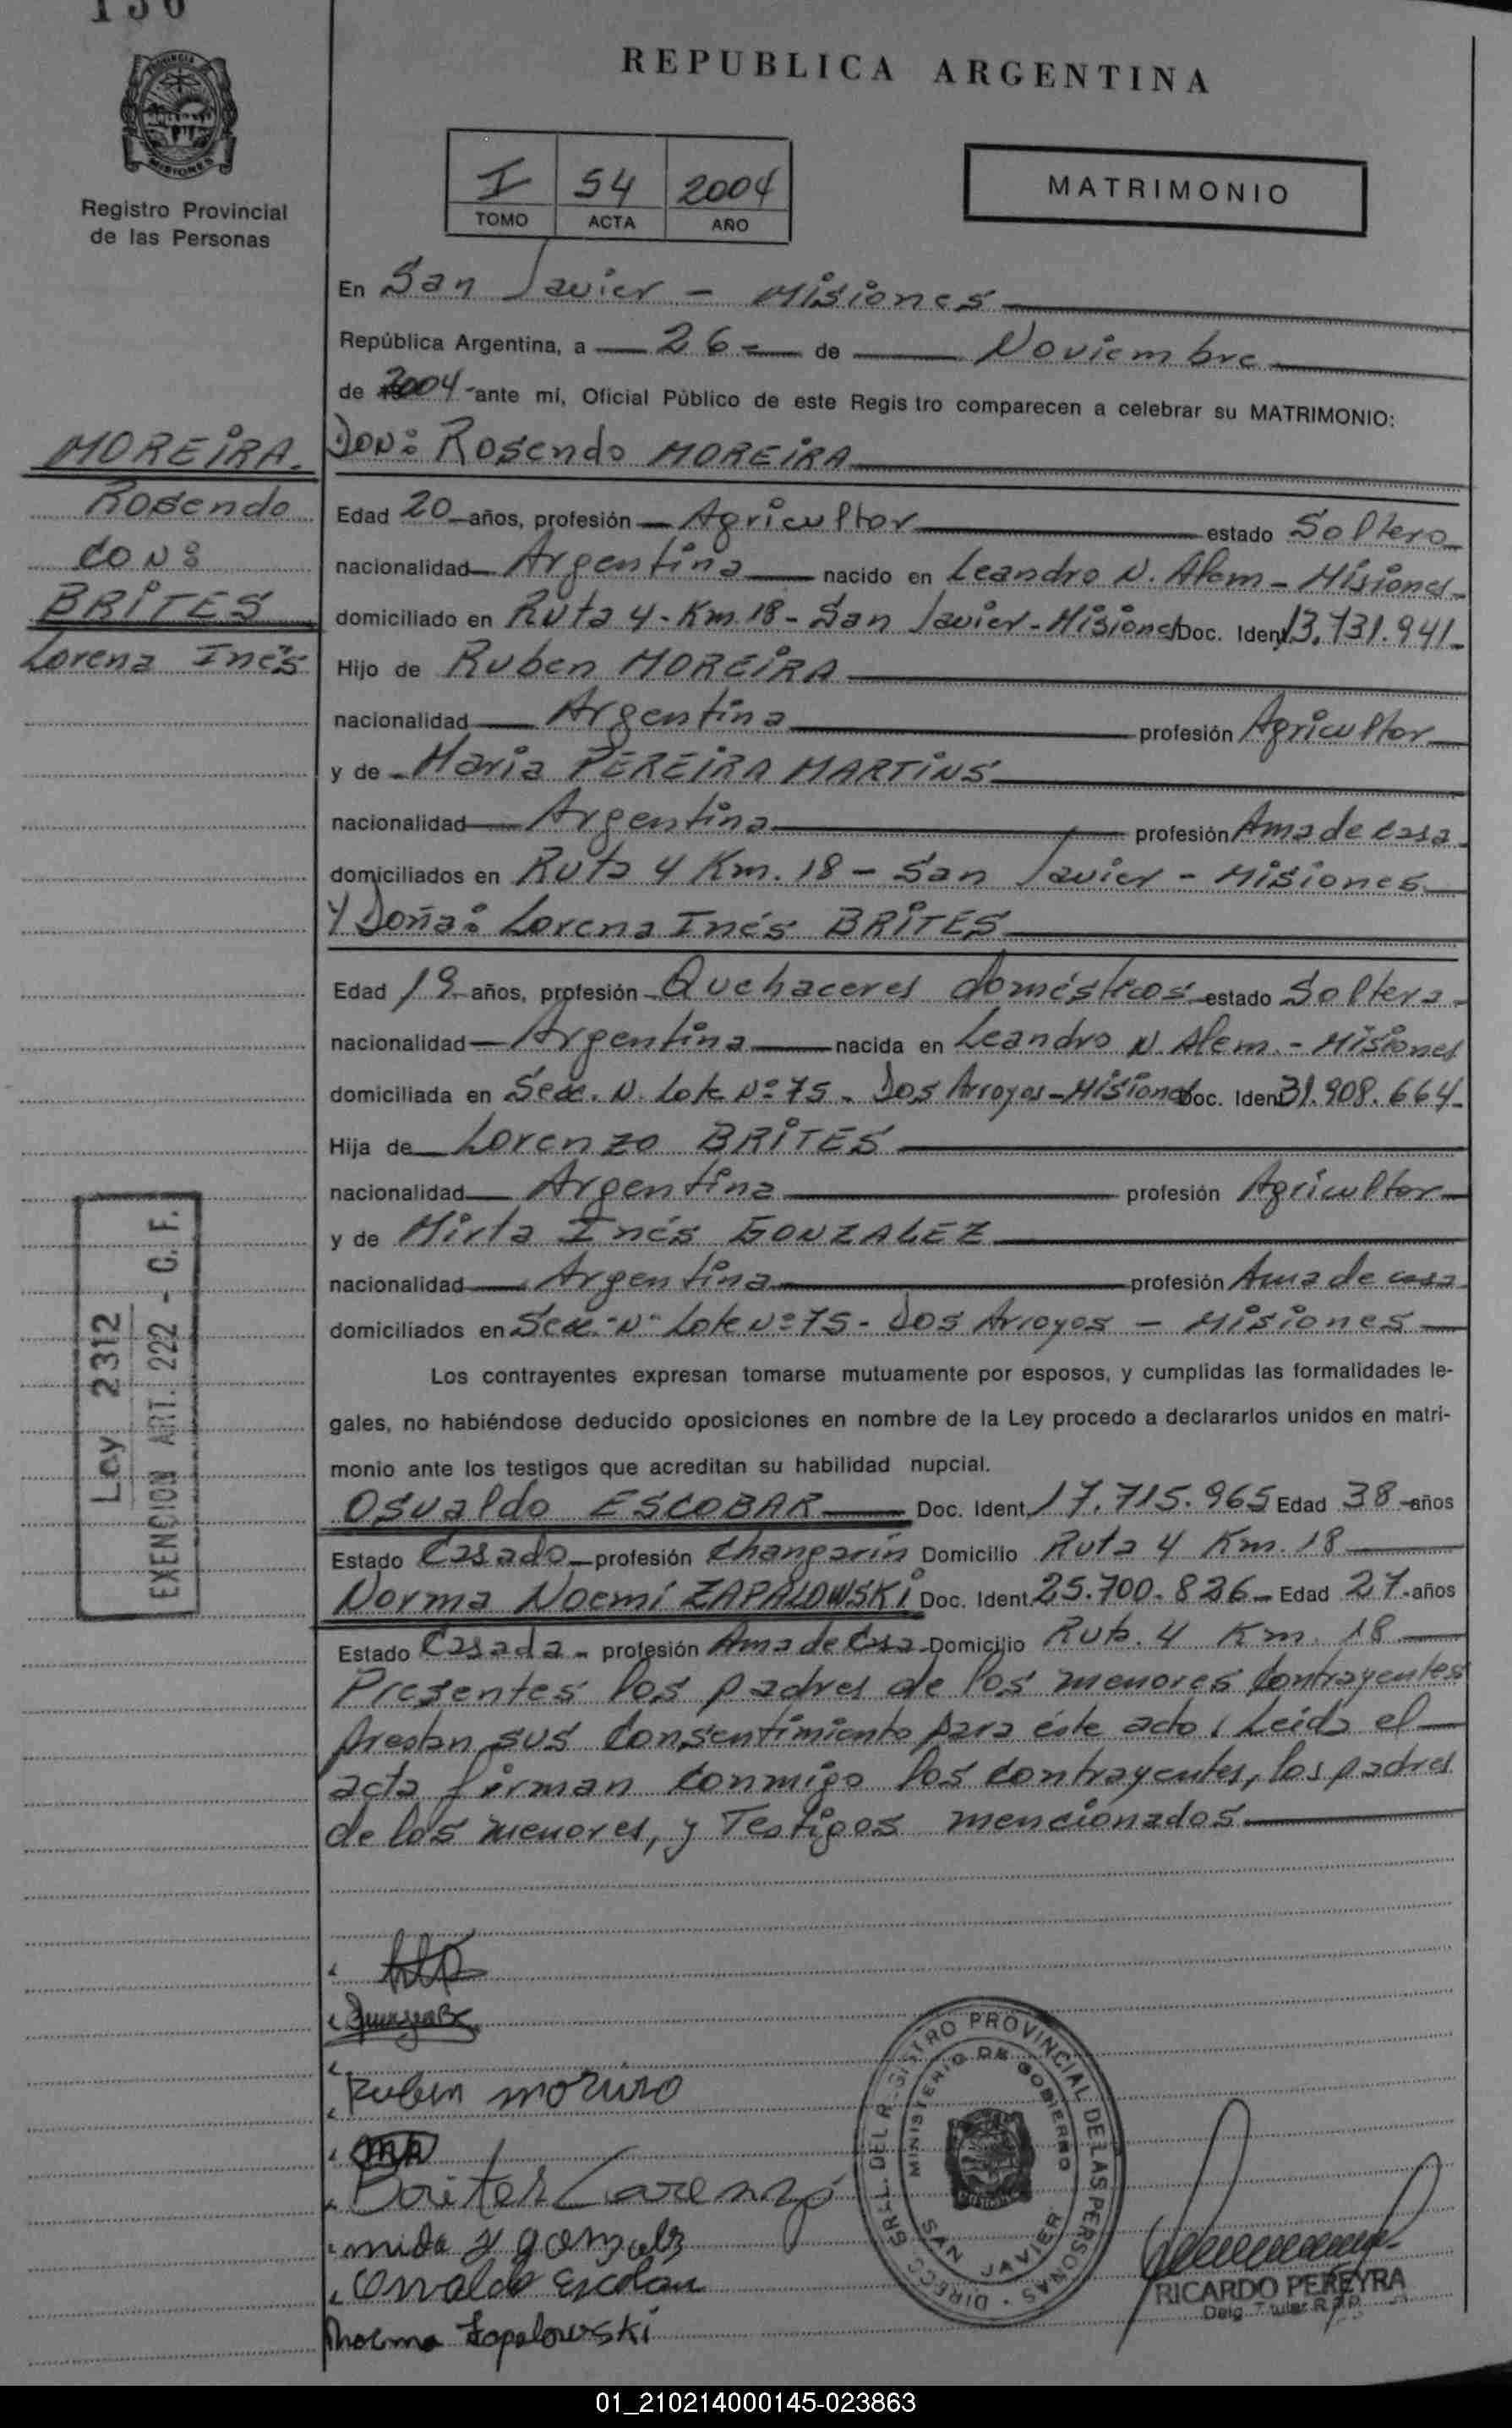 REPUBLICA ARGENTINA
MISIONES
Registro Provincial
de las Personas
I 54 2004
TOMO ACTA AÑO
MATRIMONIO
En San Javier - Misiones
República Argentina, a 26 de Noviembre
de 2004 ante mí, Oficial Público de este Regis tro comparecen a celebrar su MATRIMONIO:
MOREIRA.
Rosendo
CON:
BRITES
Lorena Inés
Don: Rosendo MOREIRA
Edad 20 años, profesión Agricultor estado Soltero
nacionalidad Argentina nacido en Leandro N. Alem - Misiones
domiciliado en Ruta 4 - Km. 18 - San Javier - Misiones Doc. Ident
Hijo de Ruben MOREIRA
nacionalidad Argentina profesión Agricultor
y de Maria PEREIRA MARTINS
nacionalidad Argentina profesión Ama de casa
domiciliados en Ruta 4 Km. 18 - San Javier - Misiones
Y Doña: Lorena Inés BRITES
Edad 19 años, profesión Quehaceres domésticos estado Soltera
nacionalidad Argentina nacida en Leandro N. Alem - Misiones
domiciliada en Secc. N. Lote Nº 75 - Dos Arroyos - Misiones Doc. Ident 31.908.664-
Hija de Lorenzo BRITES
nacionalidad Argentina profesión Agricultor
y de Mirta Inés GONZALEZ
nacionalidad Argentina profesión Ama de casa
domiciliados en Secc. "N" Lote Nº 75 - Dos Arroyos - Misiones
Ley 2312
EXENCION ART. 222 - C. F.
Los contrayentes expresan tomarse mutuamente por esposos, y cumplidas las formalidades le-
gales, no habiéndose deducido oposiciones en nombre de la Ley procedo a declararlos unidos en matri-
monio ante los testigos que acreditan su habilidad nupcial.
Osvaldo ESCOBAR Doc. Ident. 17.715.965 Edad 38 años
Estado Casado profesión Changarín Domicilio Ruta 4 Km. 18
Norma Noemí ZAPALOWSKI Doc. Ident. 25.700.826 Edad 27 años
Estado Casada - profesión Ama de Casa Domicilio Ruta. 4 Km. 18
Presentes los padres de los menores contrayentes
prestan sus consentimiento para éste acto, Leída el
acta firman conmigo los contrayentes, los padres
de los menores, y Testigos mencionados
Ruben
Brites Lorenzo
Osvaldo
Zapalowski
DIRECC. GRAL. DEL REGISTRO PROVINCIAL DE LAS PERSONAS
MINISTERIO DE GOBIERNO
SAN JAVIER
RICARDO PEREYRA
01_210214000145-023863